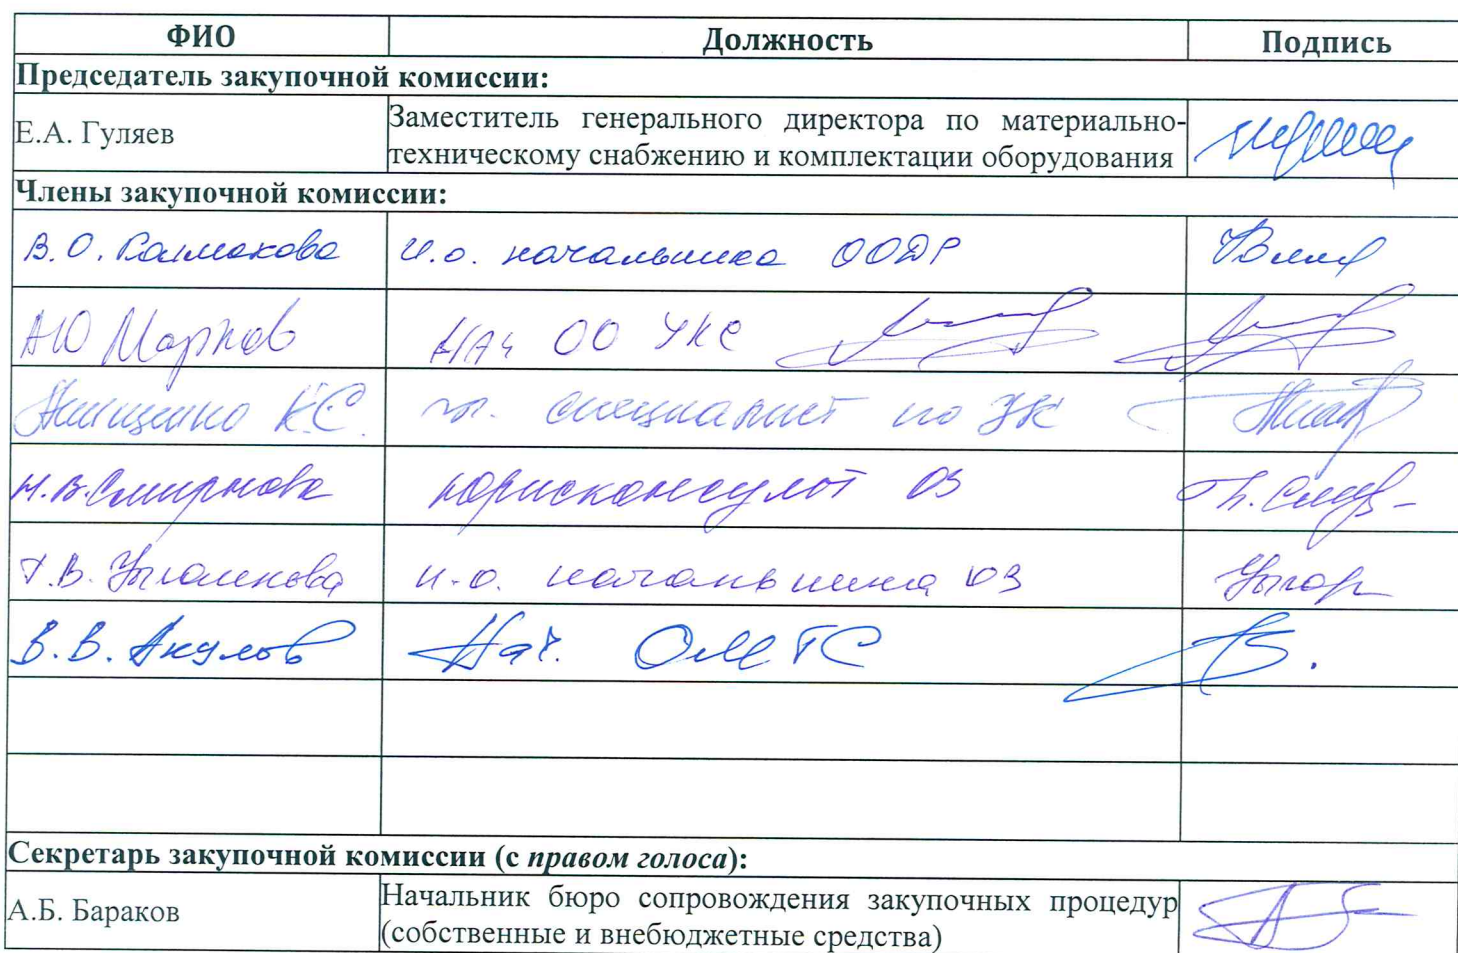 ФИО Должность Подпись
Председатель закупочной комиссии:
Е.А. Гуляев
Заместитель генерального директора по материально-
техническому снабжению и комплектации оборудования
Члены закупочной комиссии:
В.О. И.о. начальника ООДР
АЮ Марков НАЧ ОО УКС
К.С. гл. специалист по УК
Н.В. Смирнова юрисконсульт ОЗ
В. и.о. начальника ЮЗ
В.В. Акулов Нач. ОМТС
Секретарь закупочной комиссии (с правом голоса):
А.Б. Бараков
Начальник бюро сопровождения закупочных процедур
(собственные и внебюджетные средства)